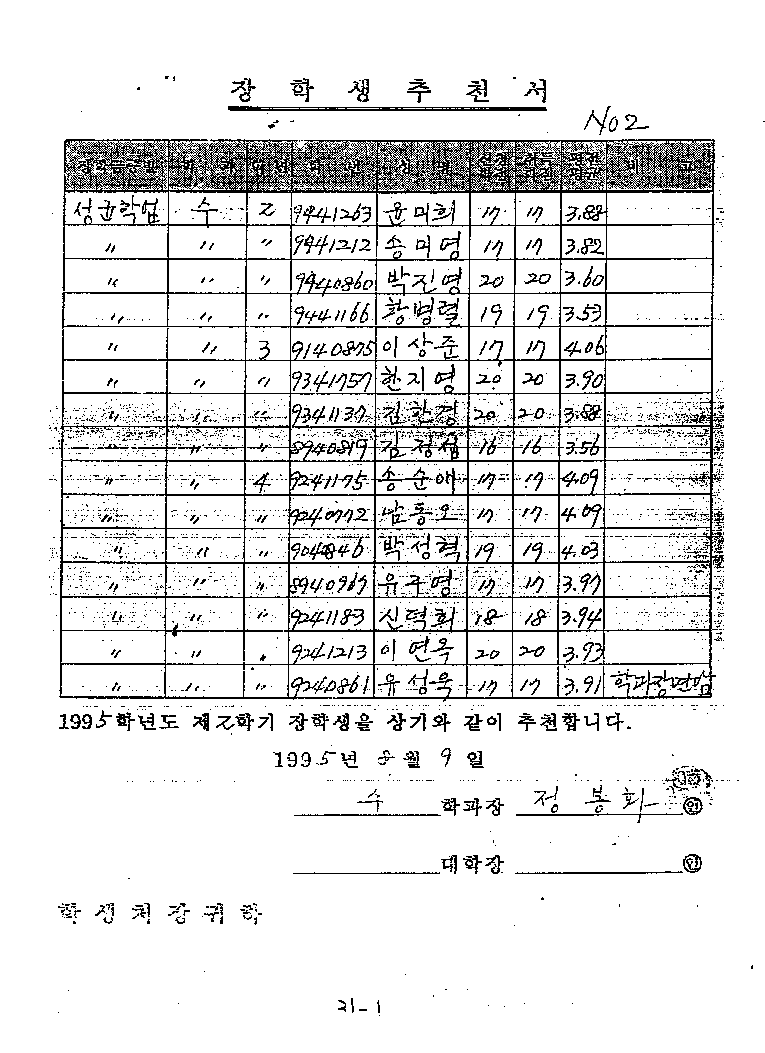 장 학 생 추 천 서
No2
장학금구분 학 과 학년 학 번 성 명 신청학점 취득학점 평균평점 비 고
성균학업 수 2 9441263 윤미희 17 17 3.88
〃 〃 〃 9441212 송미영 17 17 3.82
〃 〃 〃 9440860 박진영 20 20 3.60
〃 〃 〃 9441166 황병렬 19 19 3.53
〃 〃 3 9140875 이상준 17 17 4.06
〃 〃 〃 9341757 한지영 20 20 3.90
〃 〃 〃 9341137 김한경 20 20 3.88
〃 〃 〃 8940819 김정섭 16 16 3.56
〃 〃 4 9241175 송순애 17 17 4.09
〃 〃 〃 9240772 남동오 17 17 4.09
〃 〃 〃 904846 박성혁 19 19 4.03
〃 〃 〃 8940967 유주영 17 17 3.97
〃 〃 〃 9241183 신덕희 18 18 3.94
〃 〃 〃 9241213 이연옥 20 20 3.93
〃 〃 〃 9240861 유성욱 17 17 3.91 학과장면담
1995학년도 제2학기 장학생을 상기와 같이 추천합니다.
1995년 8월 9일
수 학과장 정 봉 화 인
대학장 인
학 생 처 장 귀 하
21-1